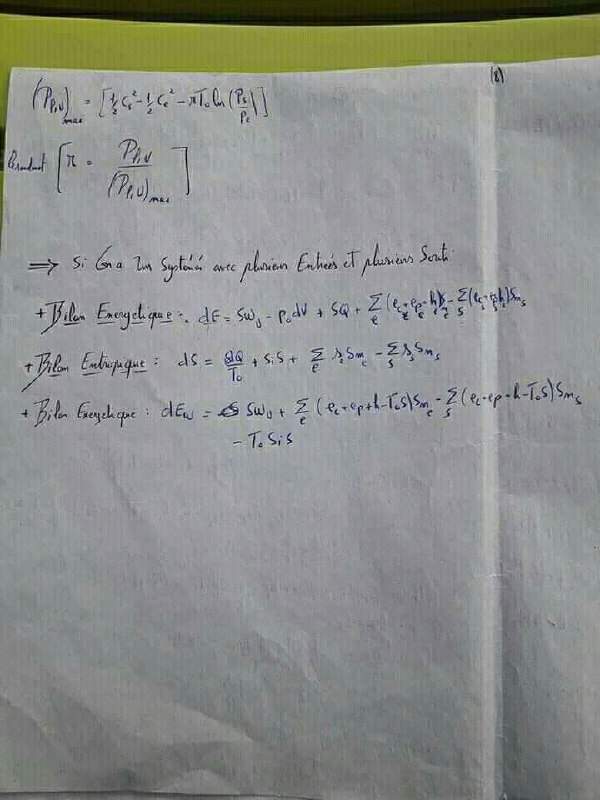 (8)
(P_{P,U})_{max} = [½ C_s² - ½ C_e² - πT₀ ln(P_s/P_e)]
[π = P_{P,U} / (P_{P,U})_{max}]
⇒ Si On a Un Système avec plusieurs Entrées et plusieurs Sorti
+ Bilan Energetique : dE = δW_U - P₀dV + δQ + Σ_e (e_c + e_p + h)_e δm_e - Σ_s (e_c + e_p + h)_s δm_s
+ Bilan Entropique : dS = δQ/T₀ + δiS + Σ_e s_e δm_e - Σ_s s_s δm_s
+ Bilan Exergetique : dE_W = δW_U + Σ_e (e_c + e_p + h - T₀S) δm_e - Σ_s (e_c + e_p + h - T₀S) δm_s
- T₀ δiS